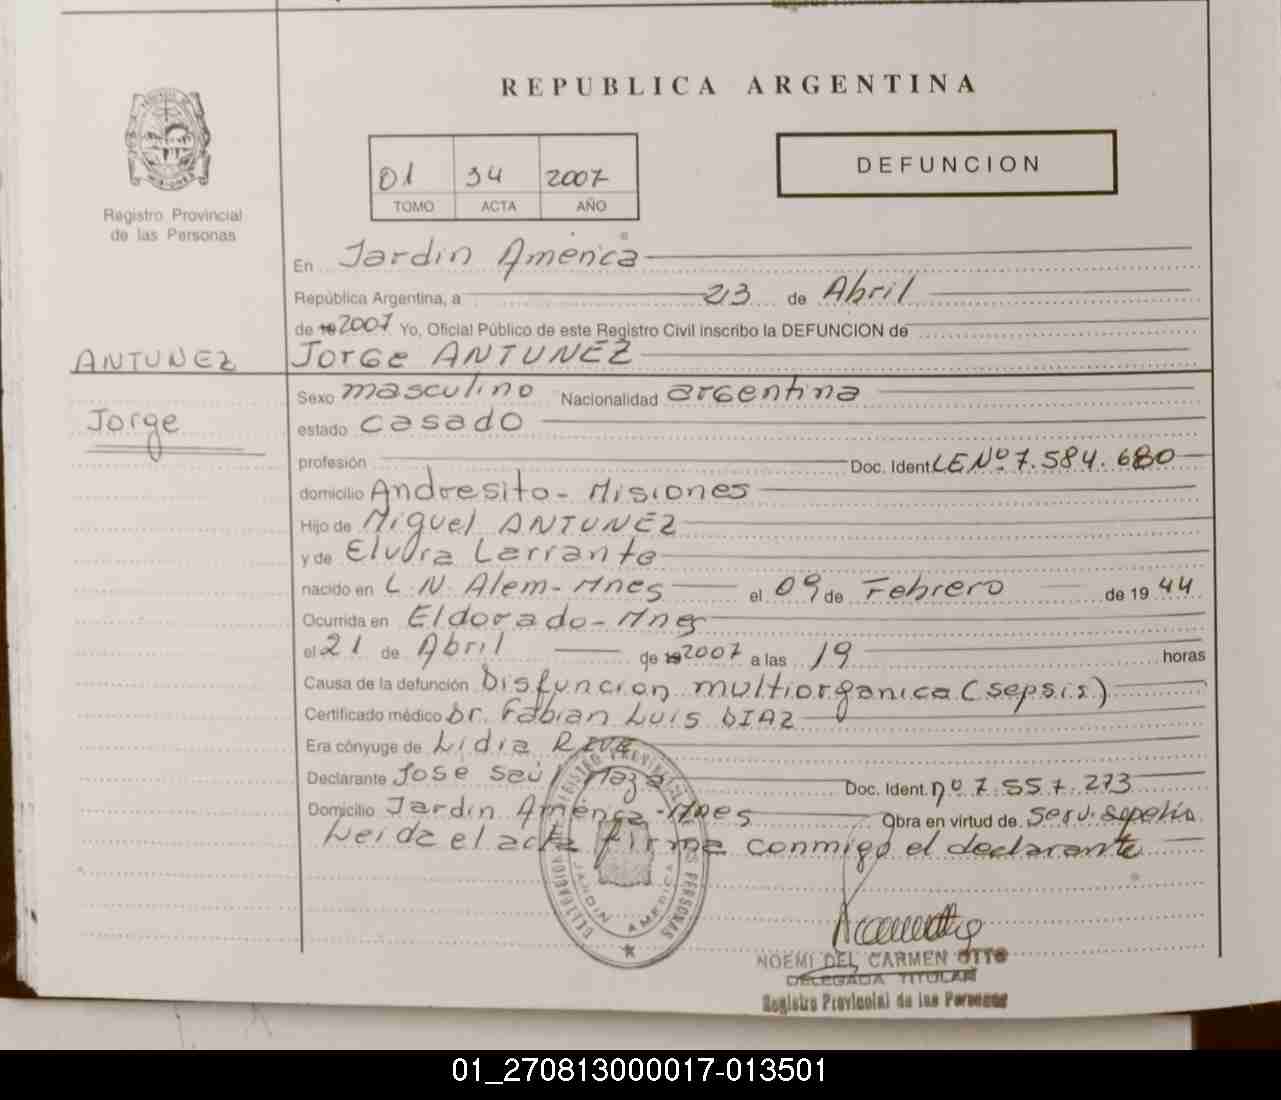 REPUBLICA ARGENTINA
01 34 2007
TOMO ACTA AÑO
DEFUNCION
Registro Provincial
de las Personas
En Jardín América
República Argentina, a 23 de Abril
de 19 2007 Yo, Oficial Público de este Registro Civil inscribo la DEFUNCION de
ANTUNEZ Jorge ANTUNEZ
Jorge
Sexo masculino Nacionalidad argentina
estado casado
profesión Doc. Ident. LE Nº 7.584.680
domicilio Andresito - Misiones
Hijo de Miguel ANTUNEZ
y de Elvira Larrante
nacido en L.N. Alem - Mnes el 09 de Febrero de 1944
Ocurrida en Eldorado - Mnes
el 21 de Abril de 19 2007 a las 19 horas
Causa de la defunción Disfuncion multiorganica (sepsis)
Certificado médico Dr. Fabian Luis DIAZ
Era cónyuge de Lidia
Declarante José Saúl Doc. Ident. nº 7.557.273
Domicilio Jardín América - Mnes Obra en virtud de Serv. sepelio
Leida el acta firma conmigo el declarante
DELEGACION REGISTRO PROVINCIAL DE LAS PERSONAS
JARDIN AMERICA
NOEMI DEL CARMEN OTTO
DELEGADA TITULAR
Registro Provincial de las Personas
01_270813000017-013501